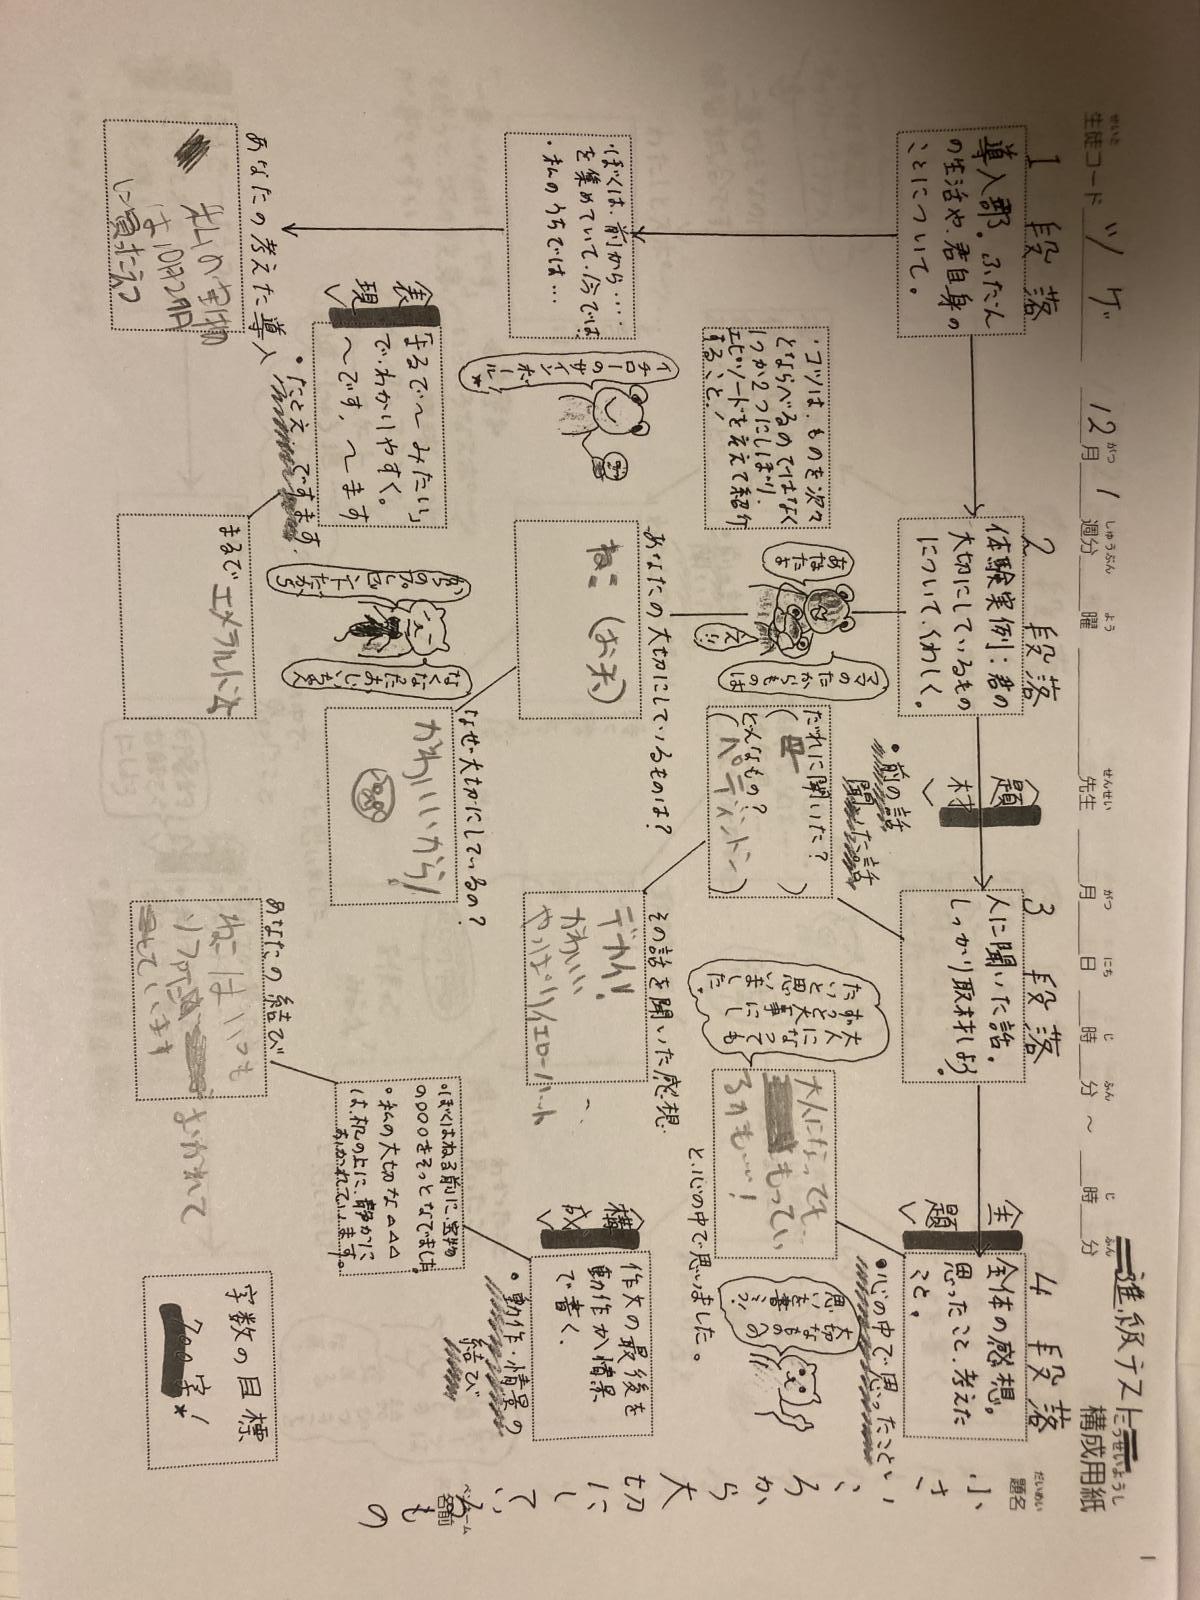 進級テスト
構成用紙
題名
小さいころから大切にしているもの
ペンネーム
名前
生徒コード ツゲ 12月1週分 曜 先生 月 日 時 分 ～ 時 分
1 段落
導入部。ふだん
の生活や、君自身の
ことについて。
・ぼくは、前から…
を集めていて、今では
・私のうちでは…
あなたの考えた導入
私の宝物
・コツは、ものを次々
とならべるのではなく
1つか2つにしぼり、
エピソードを交えて紹介
すること！
イチローのサインボール*
表現
「まるで～みたい」
で、わかりやすく。
～です、～ます
・たとえ
ですます
まるでエメラルド
2 段落
体験実例：君の
大切にしているもの
について、くわしく。
あなたよ
ママのたからものは
え!!
あなたの大切にしているものは？
なぜ大切にしているの？
かわいいから！
なくなったおじいちゃん
題材
・前の話
聞いた話
だれに聞いた？
（母）
どんなもの？
（パディントン）
3 段落
人に聞いた話。
しっかり取材しよう。
その話を聞いた感想
デカイ！
かわいい
やっぱりイエローハート
大人になっても
ずっと大事にし
たいと思いまし
た。
大人になっても…
もってい
るかも…！
と、心の中で思いました。
4 段落
全体の感想。
思ったこと、考えた
こと。
主題
・心の中で思ったこと
構成
作文の最後を
動作か情景
で書く。
・動作・情景の
結び
・ぼくはねる前に、宝物
の〇〇〇をそっとなでました。
・私の大切な△△△
は、机の上に、静かに
おかれています。
あなたの結び
ねこはいつも
おかれて
字数の目標
700字！
1